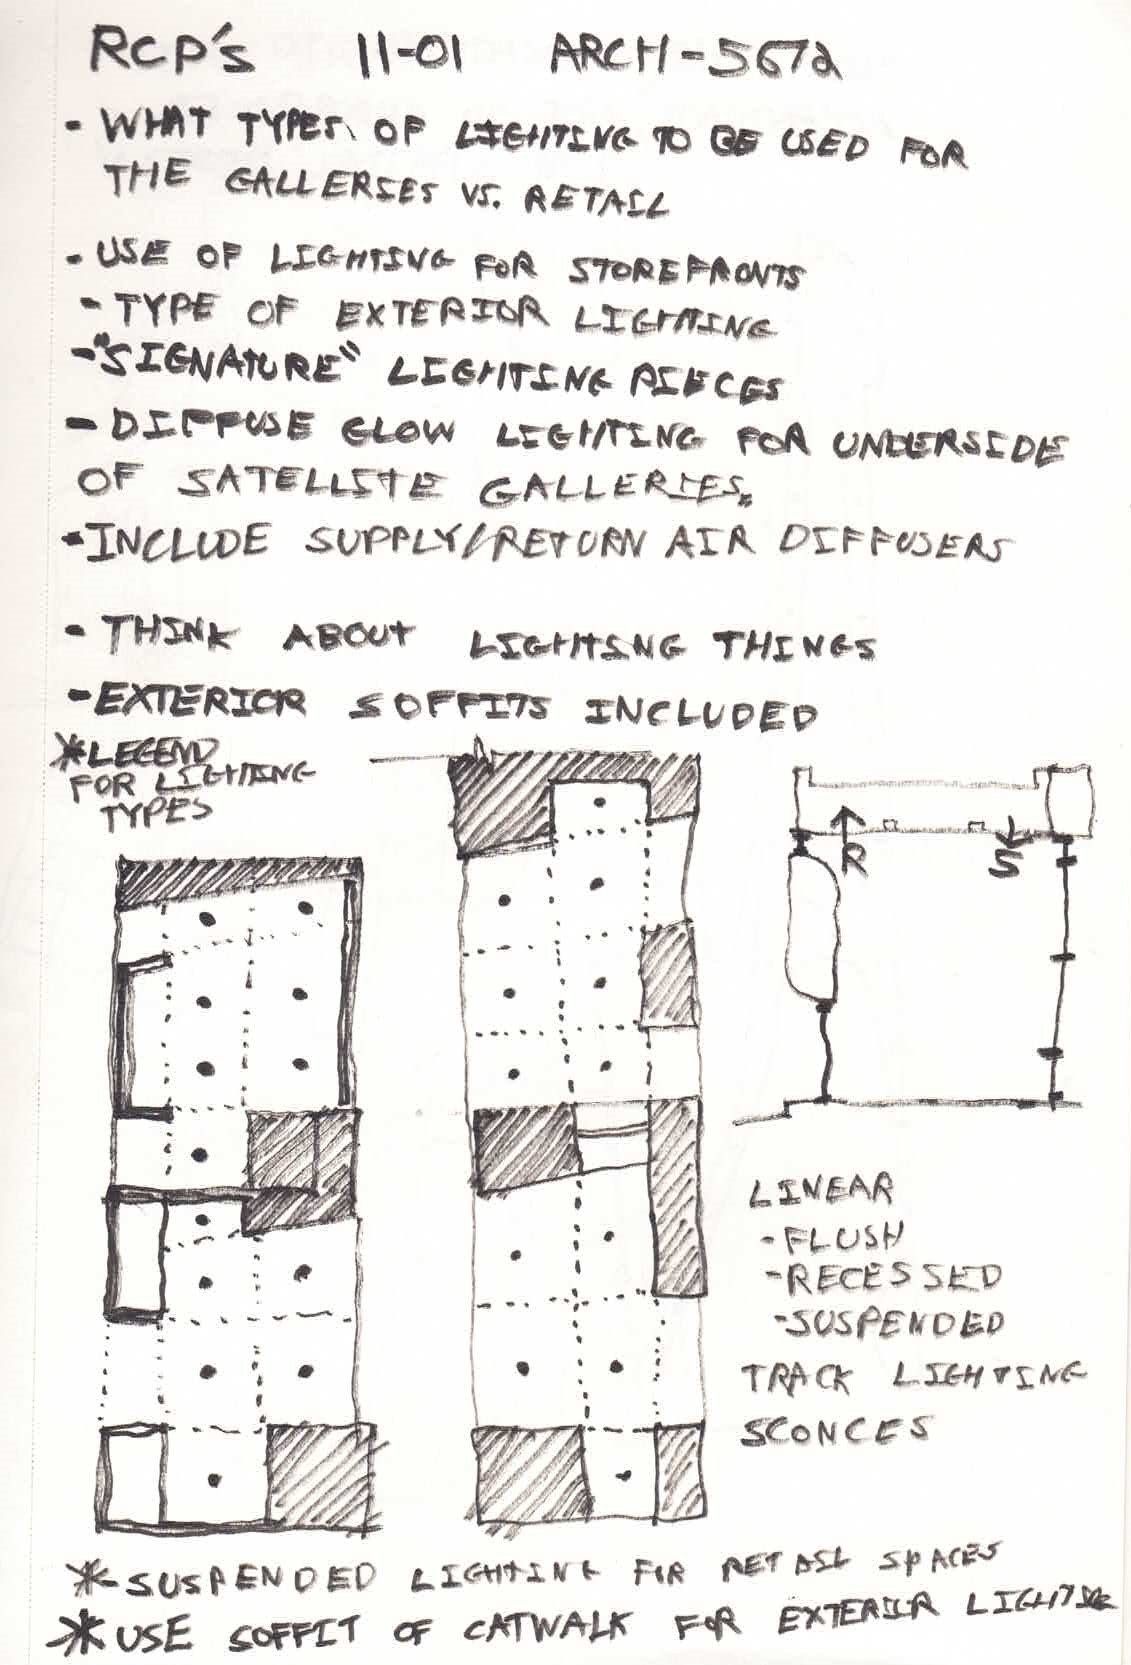 RCP's 11-01 ARCH-567a
- WHAT TYPES OF LIGHTING TO BE USED FOR
THE GALLERIES VS. RETAIL
- USE OF LIGHTING FOR STOREFRONTS
- TYPE OF EXTERIOR LIGHTING
- "SIGNATURE" LIGHTING PIECES
- DIFFUSE GLOW LIGHTING FOR UNDERSIDE
OF SATELLITE GALLERIES.
- INCLUDE SUPPLY/RETURN AIR DIFFUSERS
- THINK ABOUT LIGHTING THINGS
- EXTERIOR SOFFITS INCLUDED
* LEGEND
FOR LIGHTING
TYPES
R S
LINEAR
- FLUSH
- RECESSED
- SUSPENDED
TRACK LIGHTING
SCONCES
* SUSPENDED LIGHTING FOR RETAIL SPACES
* USE SOFFIT OF CATWALK FOR EXTERIOR LIGHTING